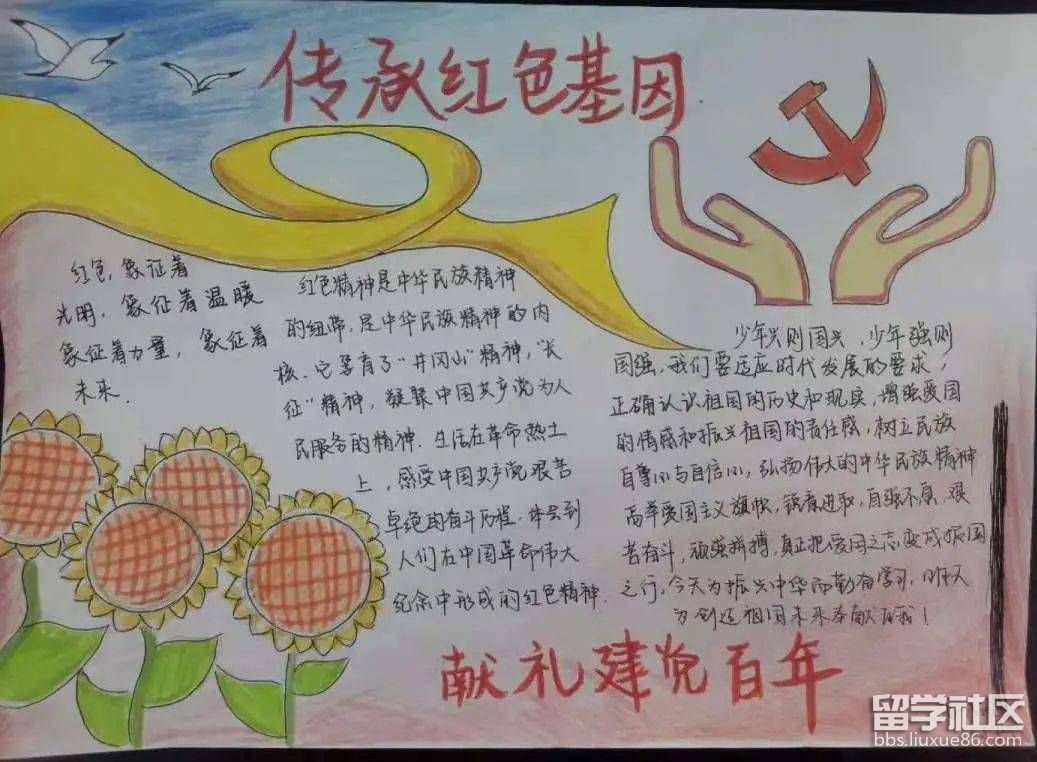 传承红色基因
红色,象征着
光明,象征着温暖
象征着力量,象征着
未来.
红色精神是中华民族精神
的纽带,是中华民族精神的内
核.它孕育了"井冈山"精神,"长
征"精神,凝聚中国共产党为人
民服务的精神.生活在革命热土
上,感受中国共产党艰苦
卓绝的奋斗历程,体会到
人们在中国革命伟大
纪念中形成的红色精神.
少年兴则国兴,少年强则
国强,我们要适应时代发展的要求,
正确认识祖国的历史和现实,增强爱国
的情感和振兴祖国的责任感,树立民族
自尊心与自信心,弘扬伟大的中华民族精神
高举爱国主义旗帜,锐意进取,自强不息,艰
苦奋斗,顽强拼搏,真正把爱国之志变成报国
之行,今天为振兴中华而勤奋学习,明天
为创造祖国未来奉献自我!
献礼建党百年
留学社区
bbs.liuxue86.com